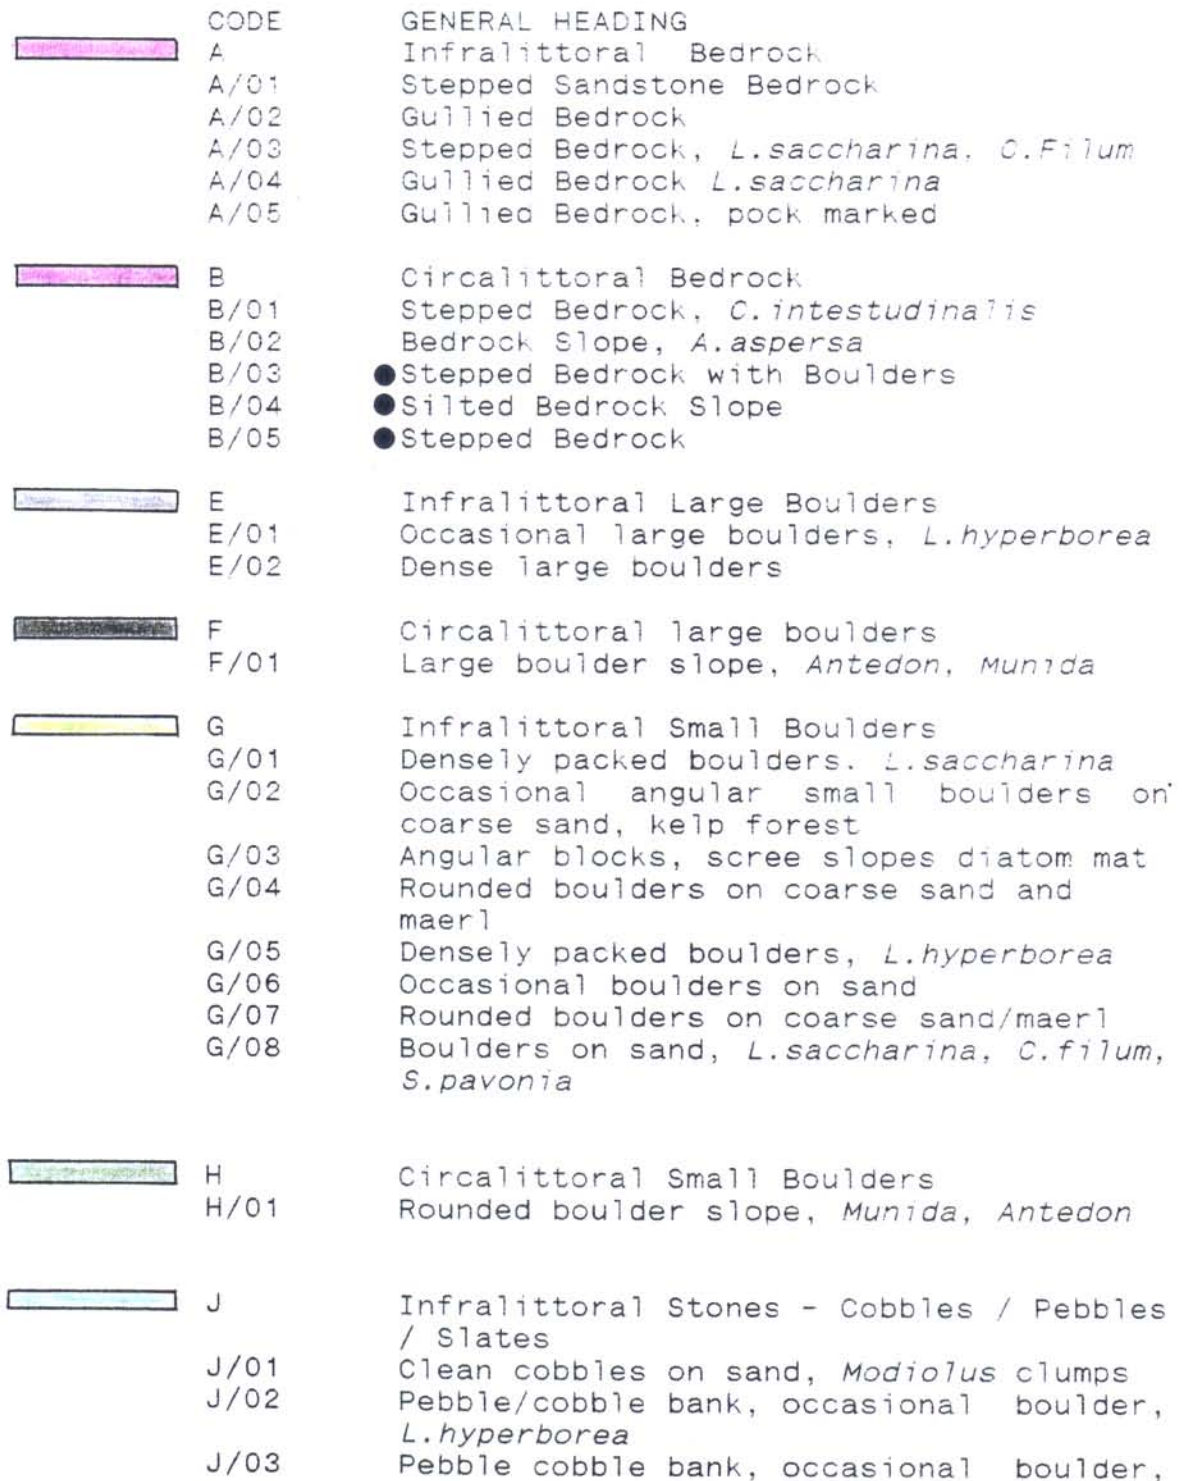 CODE GENERAL HEADING
A Infralittoral Bedrock
A/01 Stepped Sandstone Bedrock
A/02 Gullied Bedrock
A/03 Stepped Bedrock, L.saccharina, C.Filum
A/04 Gullied Bedrock L.saccharina
A/05 Gullied Bedrock, pock marked
B Circalittoral Bedrock
B/01 Stepped Bedrock, C.intestudinalis
B/02 Bedrock Slope, A.aspersa
B/03 ●Stepped Bedrock with Boulders
B/04 ●Silted Bedrock Slope
B/05 ●Stepped Bedrock
E Infralittoral Large Boulders
E/01 Occasional large boulders, L.hyperborea
E/02 Dense large boulders
F Circalittoral large boulders
F/01 Large boulder slope, Antedon, Munida
G Infralittoral Small Boulders
G/01 Densely packed boulders. L.saccharina
G/02 Occasional angular small boulders on
coarse sand, kelp forest
G/03 Angular blocks, scree slopes diatom mat
G/04 Rounded boulders on coarse sand and
maerl
G/05 Densely packed boulders, L.hyperborea
G/06 Occasional boulders on sand
G/07 Rounded boulders on coarse sand/maerl
G/08 Boulders on sand, L.saccharina, C.filum,
S.pavonia
H Circalittoral Small Boulders
H/01 Rounded boulder slope, Munida, Antedon
J Infralittoral Stones - Cobbles / Pebbles
/ Slates
J/01 Clean cobbles on sand, Modiolus clumps
J/02 Pebble/cobble bank, occasional boulder,
L.hyperborea
J/03 Pebble cobble bank, occasional boulder,